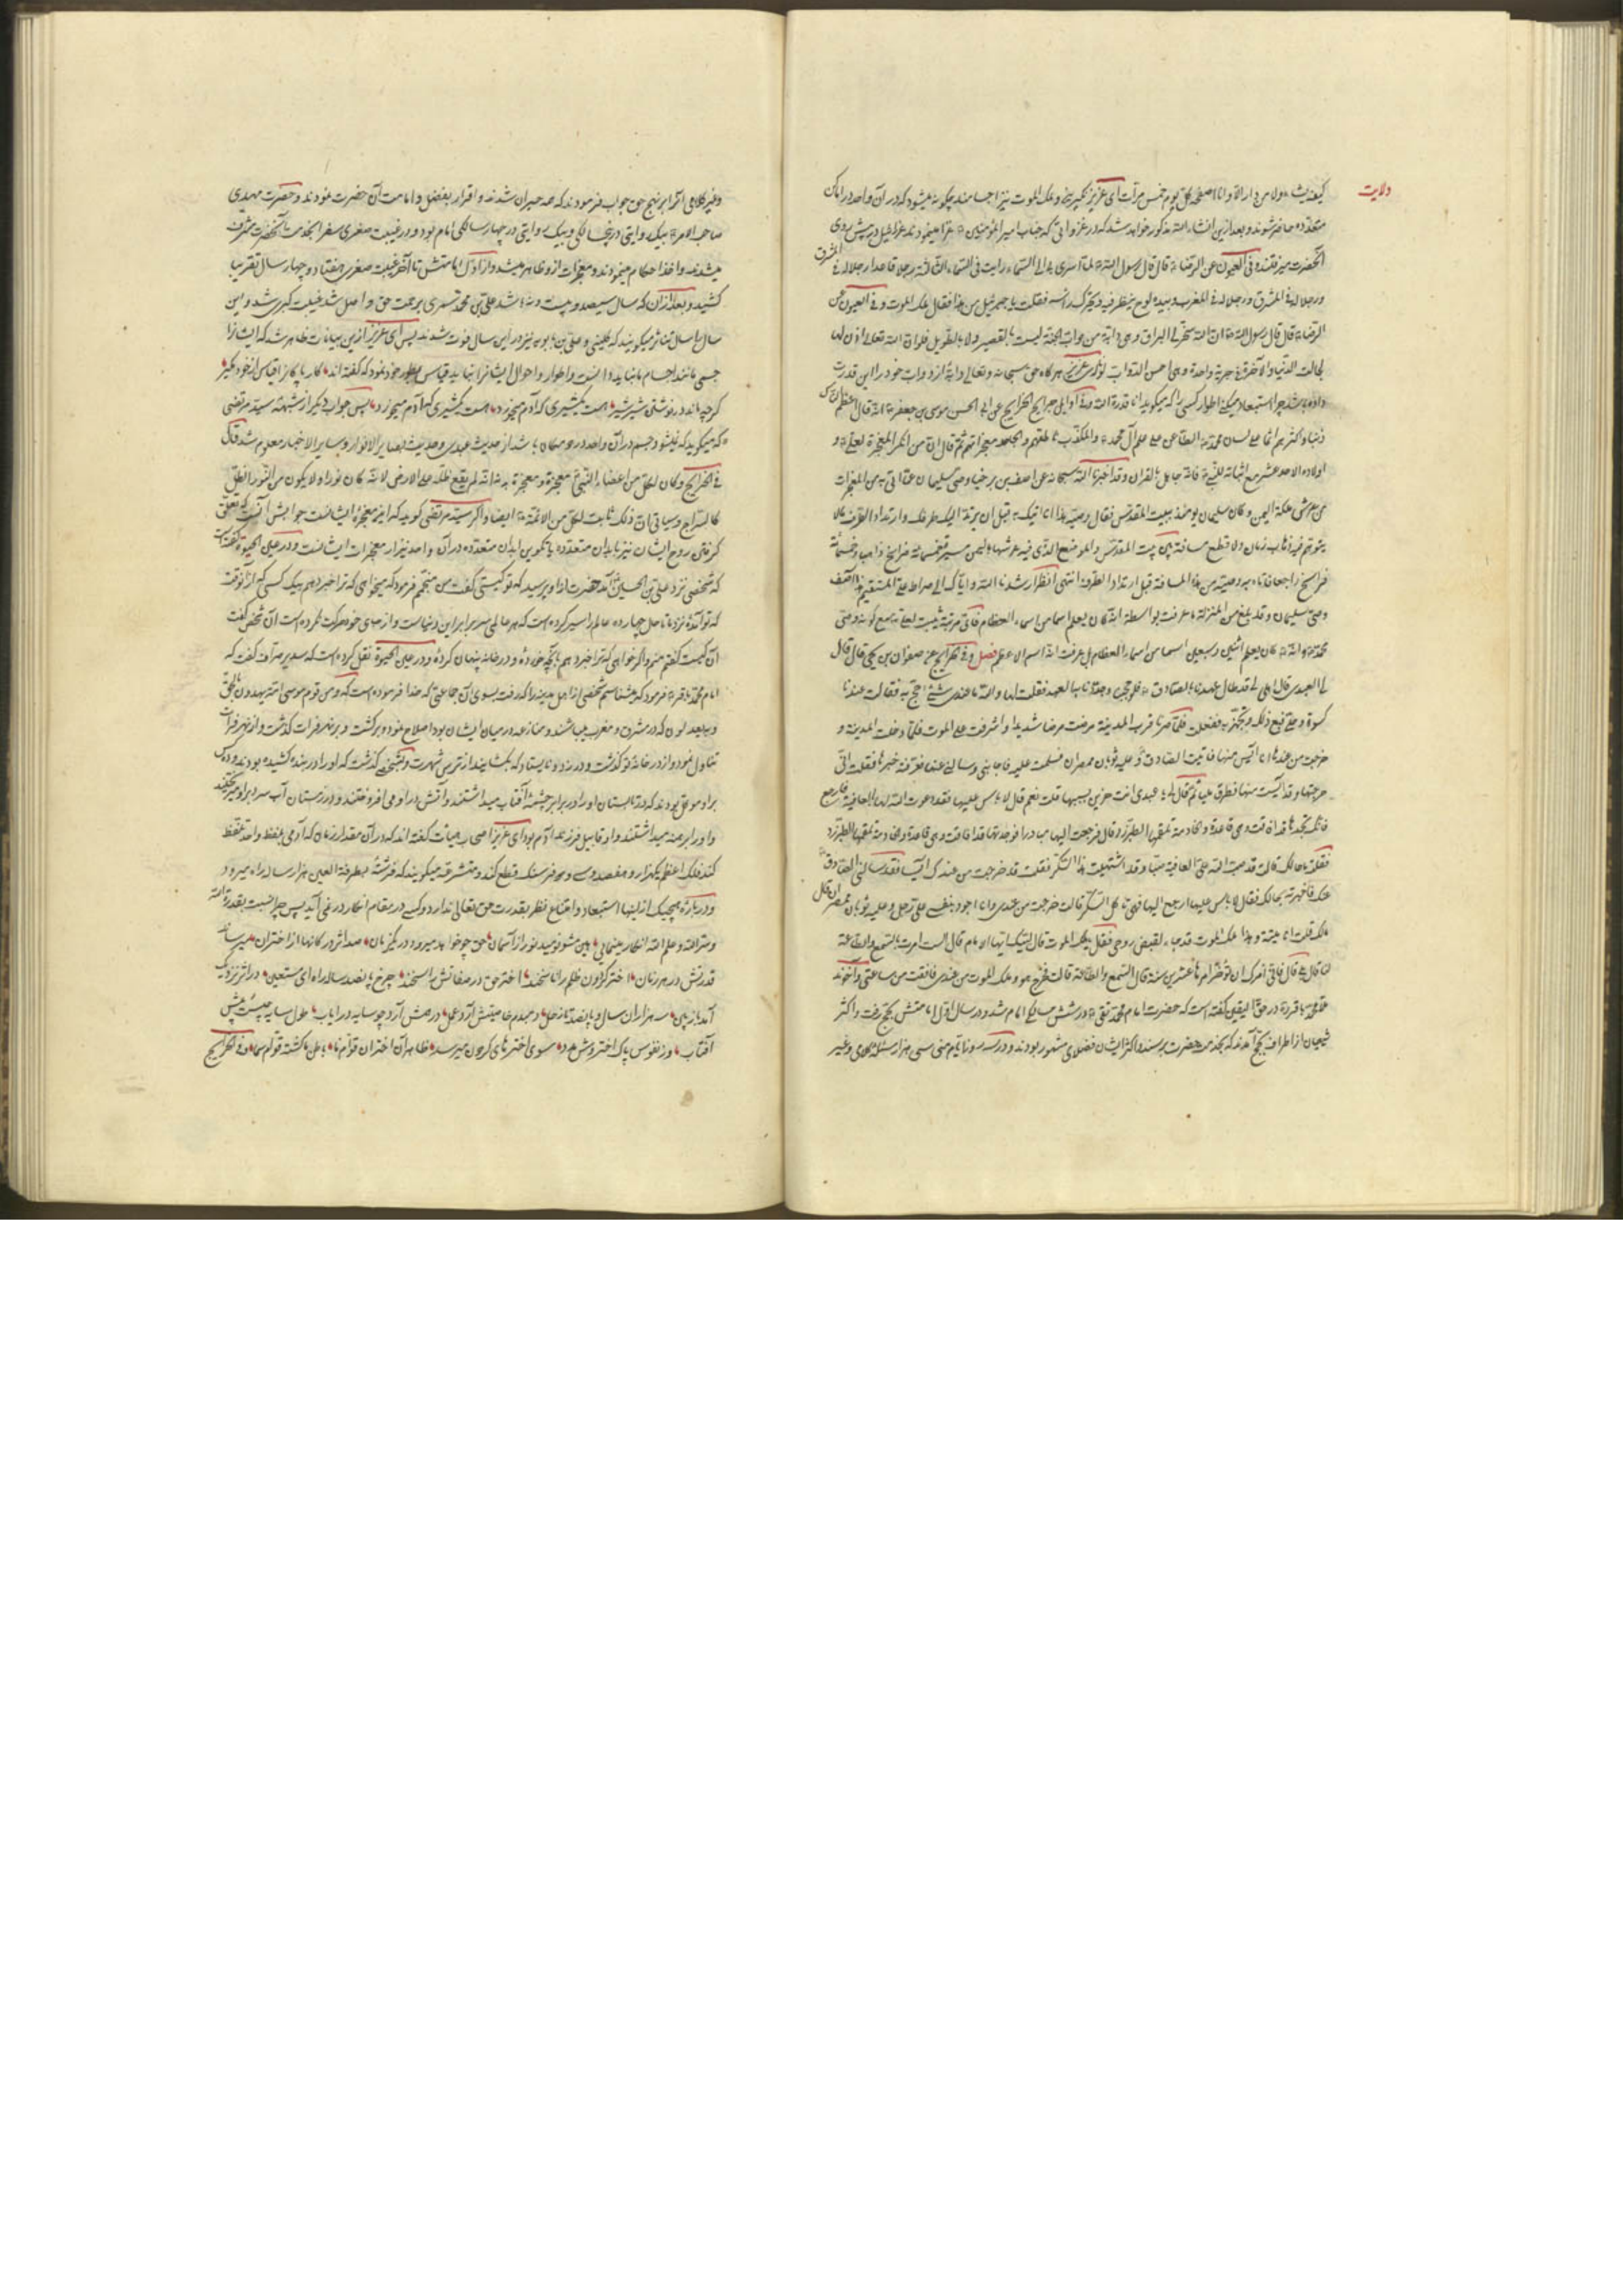 ولایت
کیف یشاء ولا من دار الا وانا اصفحها کل یوم خمس مرات ای عزیز نکیر و ملک الموت نیز اجسامند چگونه میشود که در آن واحد در اماکن
متعدده حاضر شوند و بعد ازین انشاء الله مذکور خواهد شد که در غزواتی که جناب امیر المؤمنین ع غزا مینمودند عزرائیل در پیش روی
آنحضرت میرفتند و فی العیون عن الرضا ع قال قال رسول الله ص لما اسری بی الی السماء رایت فی السماء الثالثة رجلا قاعدا رجل له فی المشرق
ورجل له فی المغرب وبیده لوح ینظر فیه ویحرک راسه فقلت یا جبرئیل من هذا فقال ملک الموت و فی العیون عن
الرضا ع قال قال رسول الله ص ان الله سخر لی البراق وهی دابة من دواب الجنة لیست بالقصیر ولا بالطویل فلو ان الله تعالی اذن لها
لجالت الدنیا والآخرة فی جریة واحدة وهی احسن الدواب لونا ای عزیز هر گاه حق سبحانه وتعالی دابهٔ از دواب خود را این قدرت
داده باشد چرا استبعاد میکنی اطوار کسی را که میگوید انا قدرة الله و فی اوایل جرایح الخرایج عن ابی الحسن موسی بن جعفر ع انه قال اعظم الناس
ذنبا و اکثرهم اثما علی لسان محمد ص الطاعن علی علم آل محمد ص والمکذب ناطقهم والجاحد معجزاتهم ثم قال ان من انکر المعجزة لعلی ع و
اولاده الاحد عشر مع اثباته للنبی ص فانه جاهل بالقران وقد اخبرنا الله سبحانه عن اصف بن برخیا وصی سلیمان عما اتی به من المعجزات
من عرش ملکة الیمن و کان سلیمان یومئذ ببیت المقدس فقال وصیه انا اتیک به قبل ان یرتد الیک طرفک وارتداد الطرف ما لا
یتوهم فیه ذهاب زمان ولا قطع مسافة بین بیت المقدس والموضع الذی فیه عرشها بالیمن مسیرة خمسمائة فراسخ ذاهبا وخمسمائة
فراسخ راجعا فاتاه به وصیه من هذه المسافة قبل ارتداد الطرف انتهی انظر ارشدنا الله وایاک الی صراط علی المستقیم هذا اصف
وصی سلیمان وقد بلغ من المنزلة ما عرفت بواسطة انه کان یعلم اسما من اسماء العظام فای مرتبة یثبت لعلی ع مع کونه وصی
محمد ص وانه ع کان یعلم اثنین وسبعین اسما من اسماء العظام بل عرفت انه اسم الاعظم فصل و فی الخرایج عن صفوان بن یحیی قال قال
لی العبدی قال اهلی لی قد طال عهدنا بالصادق ع فلو حججنا وجددنا به العهد فقلت لها والله ما عندی شیء احج به فقالت عندنا
کسوة و حلی فبع ذلک وتجهز به ففعلت فلما صرنا قرب المدینة مرضت مرضا شدیدا واشرفت علی الموت فلما دخلت المدینة و
خرجت من عندها وانا آیس منها فاتیت الصادق ع و علیه ثوبان ممصران فسلمت علیه فاجابنی وسالنی عنها فعرفته خبرها فقلت انی
خرجت وقد آیست منها فاطرق ملیا ثم قال یا عبدی انت حزین بسببها قلت نعم قال لا باس علیها فقد دعوت الله لها بالعافیة فارجع
فانک تجدها قد افاقت وهی قاعدة والخادمة تلقمها الطبرزد قال فرجعت الیها مبادرا فوجدتها قد افاقت وهی قاعدة والخادمة تلقمها الطبرزد
فقلت ما حالک قالت قد صب الله علی العافیة صبا وقد اشتهیت هذا السکر فقلت قد خرجت من عندک آیسا فقد سالنی الصادق ع
عنک فاخبرته بحالک فقال لا باس علیها ارجع الیها فهی تاکل السکر قالت خرجت من عندی وانا اجود بنفسی فدخل رجل وعلیه ثوبان ممصران قال
مالک قلت انا میتة وهذا ملک الموت قد جاء لقبض روحی فقال یا ملک الموت قال لبیک ایها الامام قال الست امرت بالسمع والطاعة
لنا قال بلی قال فانی آمرک ان تؤخر امرها عشرین سنة قال السمع والطاعة قالت فخرج هو وملک الموت من عندی فافقت من ساعتی وآخوند
ملا محمد باقر در حق الیقین گفته است که حضرت امام محمد تقی ع در شش سالگی امام شد و در سال اول امامتش بحج رفت و اکثر
شیعیان از اطراف بحج آمدند که بخدمت حضرت برسند و اکثر ایشان فضلای مشهور بودند و در سه روز ایام منی سی هزار مسئلهٔ کلامی و غیر
و غیر کلامی آنرا بر نهج حق جواب فرمودند که همه حیران شدند و اقرار بفضل و امامت آن حضرت نمودند و حضرت مهدی
صاحب الامر ع بیک روایتی در پنجسالگی و بیک روایتی در چهار سالگی امام بود و در غیبت صغری سفرا بخدمت آنحضرت مشرف
میشدند و اخذ احکام مینمودند و معجزات از و ظاهر میشد و از اول امامتش تا آخر غیبت صغری هفتاد و چهار سال تقریبا
کشید و بعد از آن که سال سیصد و بیست و نه باشد علی بن محمد سمری برحمت حق واصل شد غیبت کبری شد و این
سال را سال تناثر میگویند که کلینی و علی بن بابویه نیز در این سال فوت شدند پس ای عزیز ازین بیانات ظاهر شد که ایشانرا
جسمی مانند اجسام ما نباید دانست و اطوار و احوال ایشانرا نباید قیاس بطور خود نمود که گفته اند کار پاکان را قیاس از خود مگیر
گرچه باشد در نوشتن شیر شیر است یکشیری که آدم میخورد است یکشیری کها آدم میخورد پس جواب دیگر از شبههٔ سید مرتضی
که میگوید که نمیشود جسم در آن واحد در دو مکان باشد از حدیث عبدی و حدیث بصایر الانوار و سایر الاخبار معلوم شد قال
فی الخرایج وکان لکل من اعضاء النبی ص معجزة ومعجزة بدنه انه لم یقع ظله علی الارض لانه کان نورا ولا یکون من النور الظل
کالسراج وسیاتی ان ذلک ثابت لکل من الائمة ع ایضا و اگر سید مرتضی گوید که این معجزهٔ ایشانست جوابش آنست که تعلق
گرفتن روح ایشان نیز بابدان متعدده یا تکوین ابدان متعدده در آن واحد نیز از معجزات ایشانست و در عین الحیوة گفته است
که شخصی نزد علی بن الحسین ع آمد حضرت از او پرسید که تو کیستی گفت من منجمم فرمود که میخواهی که ترا خبر دهم بیک کسی که از آنوقت
که تو آمدهٔ نزد ما تا حال چهارده عالم را سیر کرده است که هر عالمی سه برابر این دنیاست و از جای خود حرکت نکرده است آن شخص گفت
آن کیست گفتم منم و اگر خواهی که ترا خبر دهم بآنچه خوردهٔ و در خانه پنهان کردهٔ و در عین الحیوة نقل کرده است که سدیر صراف گفت که
امام محمد باقر ع فرمود که میشناسم شخصی از اهل مدینه را که رفت بسوی آن جماعتی که خدا فرموده است که ومن قوم موسی امة یهدون بالحق
وبه یعدلون که در مشرق و مغرب میباشند و منازعه در میان ایشان بود اصلاح نمود و برگشت و بر نهر فرات گذشت و از نهر فرات
تناول نمود و از در خانهٔ تو گذشت و در نزد و نایستاد که بگشایند از ترس شهرت و بشخصی گذشت که او را در بند کشیده بودند و ده کس
بر او موکل بودند که در تابستان او را در برابر چشمهٔ آفتاب میداشتند و آتش در او می افروختند و در زمستان آب سرد بر او میریختند
و او را برهنه میداشتند و او قابیل فرزند آدم بود ای عزیز اصحاب هیأت گفته اند که در آن مقدار زمان که آدمی بلفظ واحد تلفظ
کند فلک اعظم یکهزار و هفتصد و سی و دو فرسنگ قطع کند و متشرعه میگویند که فرشتهٔ بطرفة العین هزار ساله راه میرود
و در بارهٔ هیچیک از اینها استبعاد و امتناع نظر بقدرت حق تعالی ندارد و کسی در مقام انکار در نمی آید پس چرا نسبت بقدرة الله
و سر الله و علم الله انکار مینمایی هین مشو نومید نور از آسمان حق چو خواهد میرود در یکزمان صد اثر در کانها از اختران میرساند
قدرتش در هر زمان اختر گردون ظلم را ناسخند اختر حق در صفاتش راسخند چرخ پانصد ساله راه ای مستعین در اثر نزدیک
آمد باز بین سه هزاران سال و پانصد تا زحل دمبدم خاصیتش آرد عمل در همش آرد چو سایه در ایاب طول سایه چیست پیش
آفتاب وز نفوس پاک اختروش مدد سوی اخترهای گردون میرسد ظاهر آن اختران قوام ما باطن ما گشته قوام سما و فی الخرایج